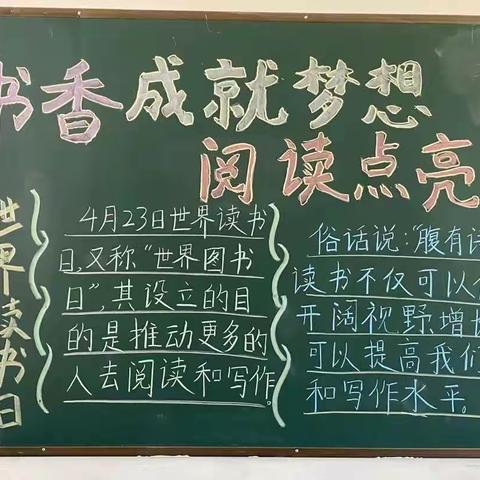 书香成就梦想
阅读点亮
世界读书日
4月23日世界读书
日,又称"世界图书
日",其设立的目
的是推动更多的
人去阅读和写作。
俗话说:"腹有诗
读书不仅可以
开阔视野增长
可以提高我们
和写作水平。